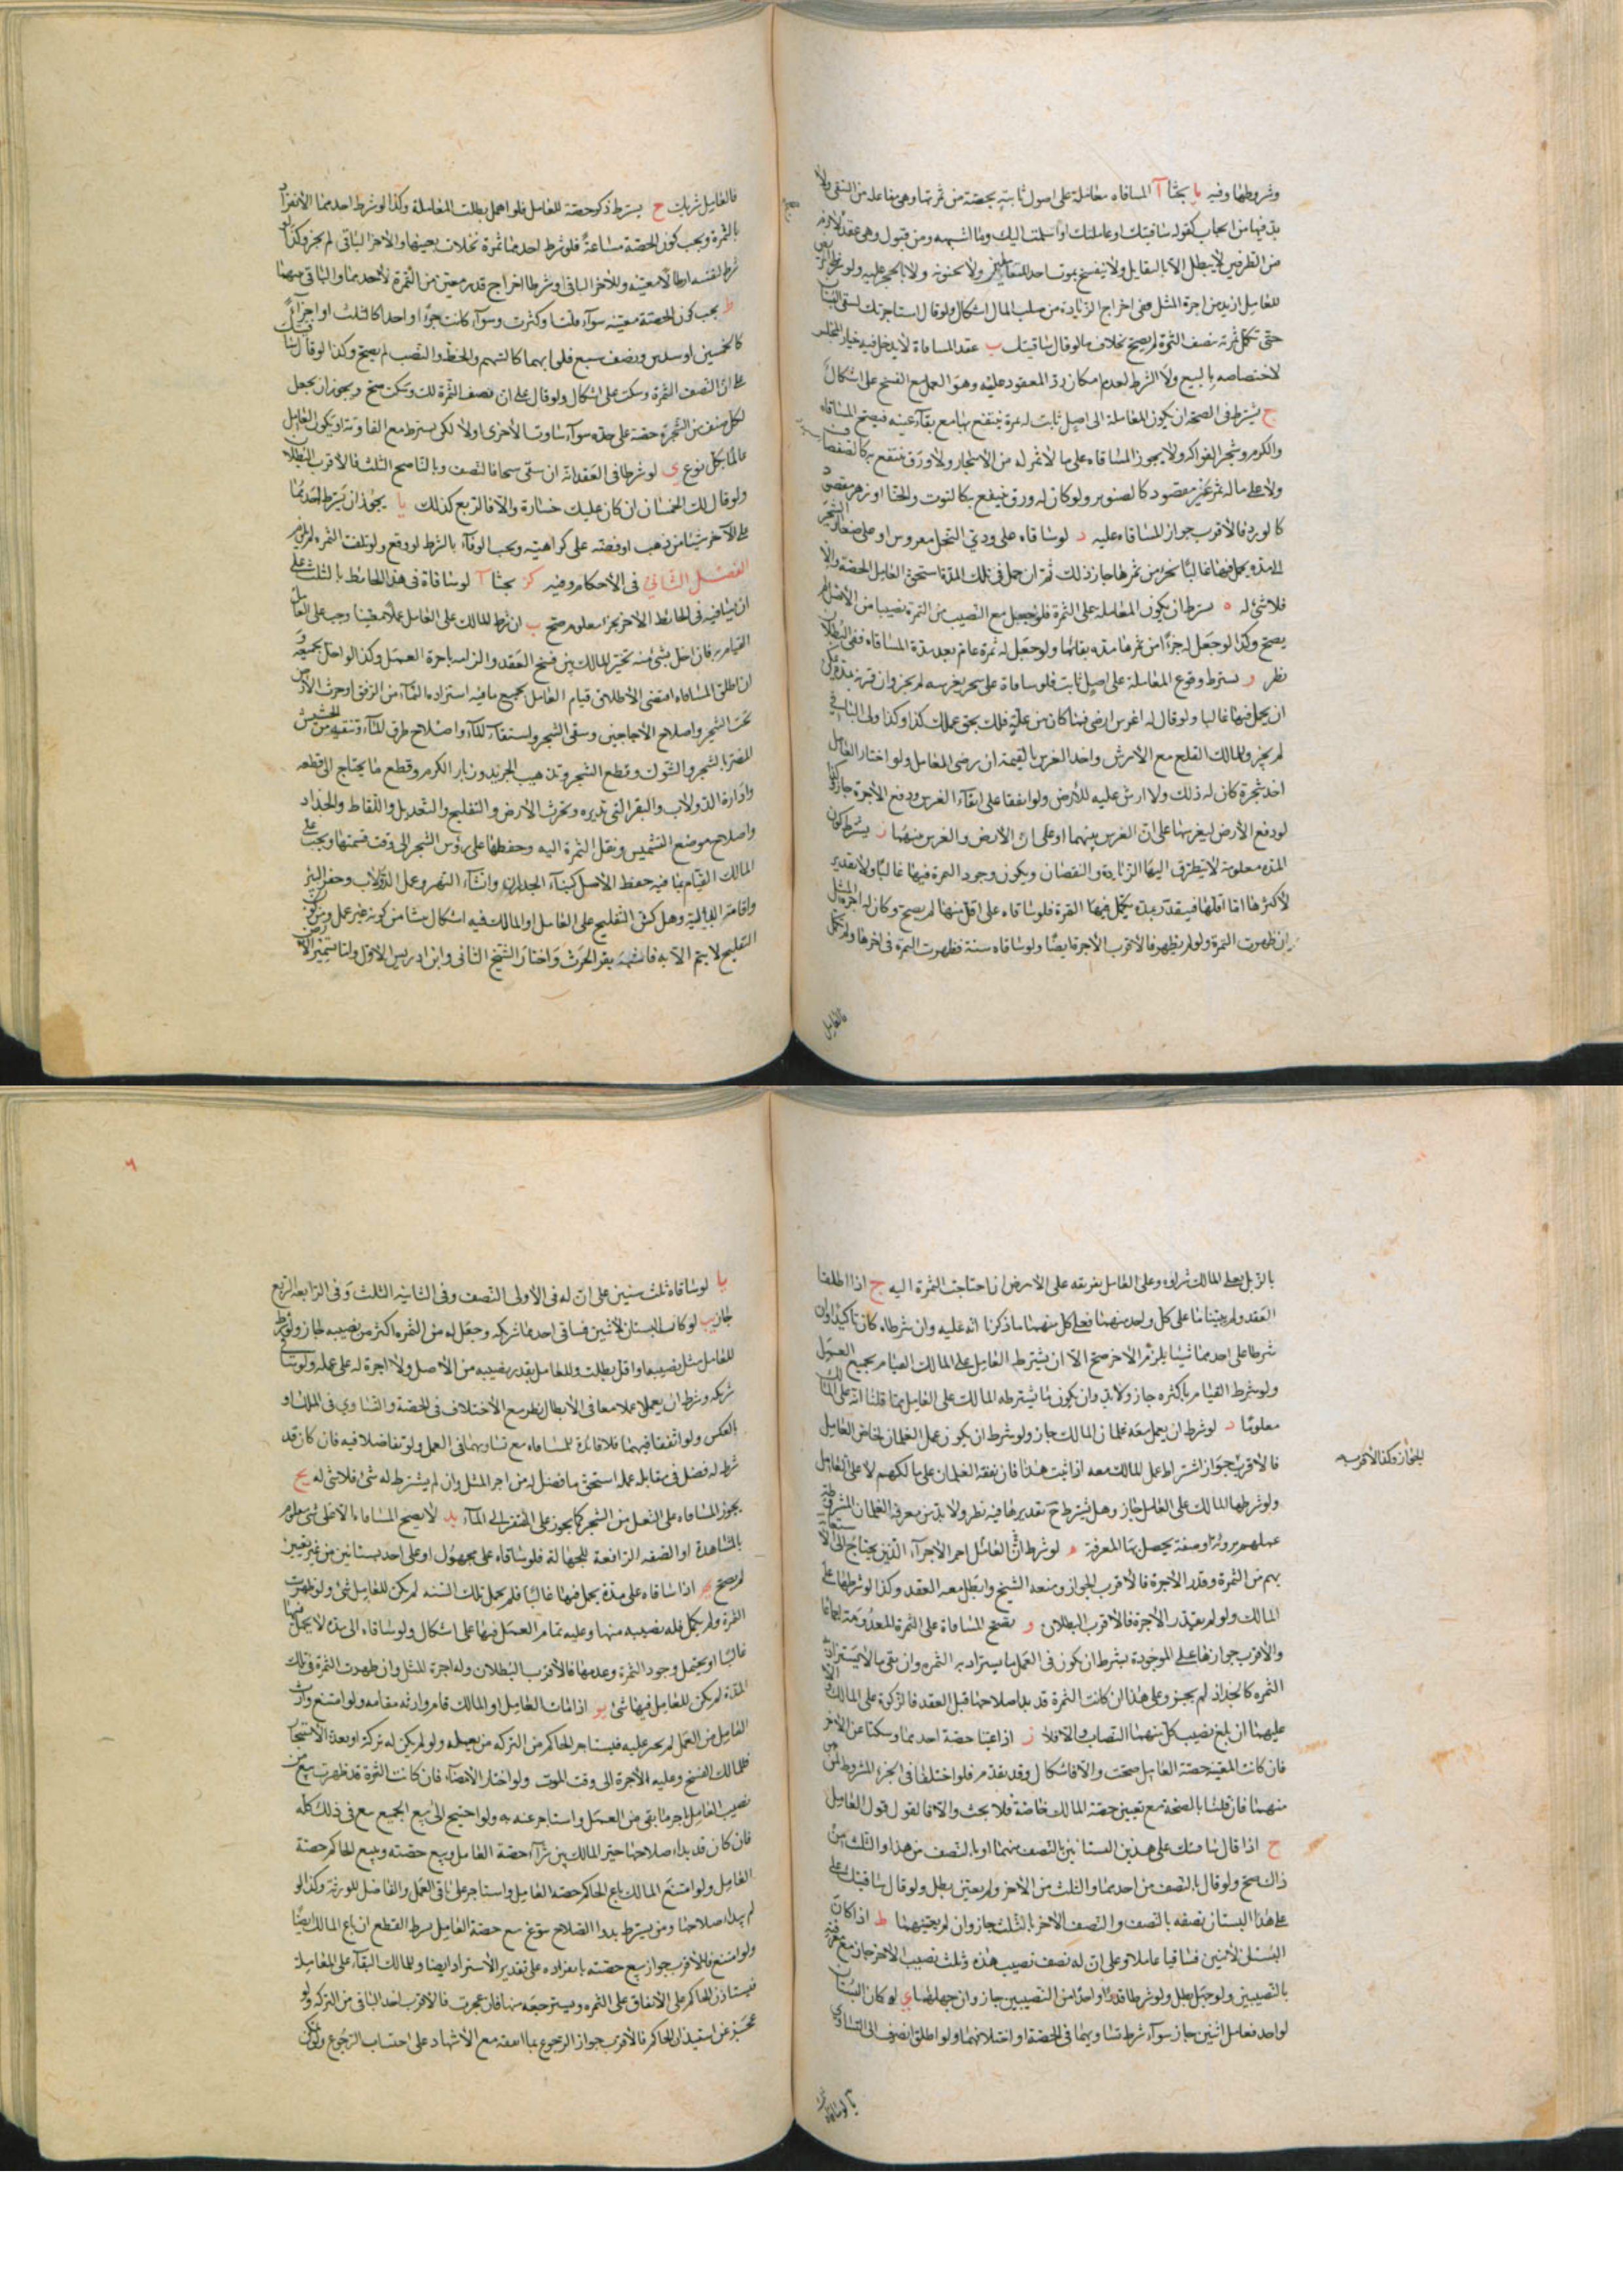 وشروطها وفيه يا بحثا آ المساقاه معاملة على اصول ثابتة بحصة من ثمرتها وهي مفاعله من السقي ولا
بد فيها من ايجاب كقوله ساقيتك او عاملتك او اسلمت اليك وما اشبهه ومن قبول وهي عقد لازم
من الطرفين لا يبطل الا بالتقايل ولا ينفسخ بموت احد المتعاملين ولا بجنونه ولا بالحجر عليه ولو
للعامل ازيد من اجرة المثل ففي اخراج الزيادة من صلب المال اشكال ولو قال استاجرتك لسقي البستان
حتى تكمل ثمرته بنصف الثمرة لم يصح بخلاف ما لو قال ساقيتك ب عقد المساقاة لا يدخل فيه خيار المجلس
لاختصاصه بالبيع ولا الشرط لعدم امكان رد المعقود عليه وهو العمل مع الفسخ على اشكال
ج يشترط في الصحة ان يكون المعاملة الى اصل ثابت له ثمرة ينتفع بها مع بقاء عينه فيصح المساقاه
والكرم وشجر الفواكه ولا يجوز المساقاه على ما لا ثمر له من الاشجار ولا ورق ينتفع به كالصفصاف
ولا على ماله ثمر غير مقصود كالصنوبر ولو كان له ورق ينتفع به كالتوت والحنا او زهر مقصود
كالورد فالاقرب جواز المساقاه عليه د لو ساقاه على ودي النخل مغروس او على صغار الشجر
الى مدة يحمل فيها غالبا بجزء من ثمرها جاز ذلك ثم ان حمل في تلك المدة استحق العامل الحصة والا
فلا شيء له ه يشترط ان يكون المعاملة على الثمرة فلو جعل مع النصيب من الثمرة نصيبا من الاصل لم
يصح وكذا لو جعل له جزءا من ثمرها مدة بقائها ولو جعل له ثمرة عام بعد مدة المساقاه ففي البطلان
نظر و يشترط وقوع المعاملة على اصل ثابت فلو ساقاه على شجر يغرسه لم يجز وان قرنه بمدة يمكن
ان يحمل فيها غالبا ولو قال له اغرس ارضي فما كان من غلة فلك بحق عملك كذا وكذا ولي الباقي
لم يجز وللمالك القلع مع الارش واخذ الغرس بالقيمة ان رضي العامل ولو اختار العامل
اخذ شجره كان له ذلك ولا ارش عليه للارض ولو اتفقا على ابقاء الغرس ودفع الاجرة جاز وكذا
لو دفع الارض ليغرسها على ان الغرس بينهما او على ان الارض والغرس بينهما ز يشترط كون
المدة معلومة لا يتطرق اليها الزيادة والنقصان ويكون وجود الثمرة فيها غالبا ولا تقدير
لاكثرها اما اقلها فيتقدر بمدة تكمل فيها الثمرة فلو ساقاه على اقل منها لم يصح وكان له اجرة المثل
ان ظهرت الثمرة ولو لم يظهر فالاقرب الاجرة ايضا ولو ساقاه سنة فظهرت الثمرة في اخرها ولم تكمل
فالعامل
فالعامل شريك ح يشترط ذكر حصة للعامل فلو اهمل بطلت المعاملة وكذا لو شرط احدهما الانفراد
بالثمرة ويجب كون الحصة مشاعة فلو شرط احدهما ثمرة نخلات بعينها والاخر الباقي لم يجز وكذا لو
شرط لنفسه ارطالا معينة وللاخر الباقي او شرطا اخراج قدر معين من الثمرة لاحدهما والباقي بينهما
ط يجب كون الحصة معينة سواء قلت او كثرت وسواء كانت جزءا واحدا كالثلث او اجزاء
كالخمسين او سدس ونصف سبع فلو ابهما كالسهم والحظ والنصب لم يصح وكذا لو قال
على ان النصف الثمرة وسكت على اشكال ولو قال على ان نصف الثمرة لك وسكت صح ويجوز ان يجعل
لكل صنف من الثمرة حصة على حده سواء ساوت الاخرى او لا لكن يشترط مع التفاوت ان يكون العامل
عالما بكل نوع ي لو شرطا في العقد انه ان سقى سيحا فالنصف وبالناضح الثلث فالاقرب البطلان
ولو قال لك الخمسان ان كان عليك خسارة والا فالربع كذلك يا يجوز ان يشترط احدهما
على الاخر شيئا من ذهب او فضه على كراهيه ويجب الوفاء بالشرط لو وقع ولو تلفت الثمره لم يلزم
الفصل الثاني في الاحكام وفيه كز بحثا آ لو ساقاه في هذا الحائط بالثلث على
ان يساقيه في الحائط الاخر بجزء معلوم صح ب ان شرط المالك على العامل عملا معينا وجب على العامل
القيام به فان اخل بشيء منه تخير المالك بين فسخ العقد والزامه باجرة العمل وكذا لو اخل بجميعه
ان اطلق المساقاه اقتضى الاطلاق قيام العامل بجميع ما فيه استزاده النماء من الرفق وحرث الارض
تحت الشجر واصلاح الاجاجين وسقي الشجر واستقاء الماء واصلاح طرق الماء وتنقيه من الحشيش
المضر بالشجر والشوك وقطع الشجر وتذهيب الجريد وزبار الكرم وقطع ما يحتاج الى قطعه
وادارة الدولاب والبقر التي تديره وبحرث الارض والتلقيح والتعديل واللقاط والجذاذ
واصلاح موضع التشميس ونقل الثمرة اليه وحفظها على رؤس الشجر الى وقت قسمتها ويجب على
المالك القيام بما فيه حفظ الاصل كبناء الجدار وانشاء النهر وعمل الدولاب وحفر البئر
واقامة الدالية وهل كش التلقيح على العامل او المالك فيه اشكال ينشا من كونه غير عمل ومن كون
التلقيح لا يتم الا به فاشبه بقر الحرث واختار الشيخ الثاني وابن ادريس الاول واما تسميد الارض
بالزبل فعلى المالك شراؤه وعلى العامل تفريقه على الارض ان احتاجت الثمرة اليه ج اذا اطلقا
العقد ولم يبينا ما على كل واحد منهما فعلى كل منهما ما ذكرنا انه عليه وان شرطاه كان تاكيدا وان
شرطا على احدهما شيئا يلزم الاخر صح الا ان يشترط العامل على المالك القيام بجميع العمل
ولو شرط القيام باكثره جاز ولا بد وان يكون ما يشترطه المالك على العامل مما قلنا انه على المالك
معلوما د لو شرط ان يعمل معه غلمان المالك جاز ولو شرط ان يكون عمل الغلمان لخاص العامل
فالاقرب جواز اشتراط عمل المالك معه اذا ثبت هذا فان نفقة الغلمان على مالكهم لا على العامل
للجواز وكذا الاقرب
ولو شرطها المالك على العامل جاز وهل يشترط ح تقديرها فيه نظر ولا بد من معرفه الغلمان المشروطة
عملهم برؤية او صفة يحصل بها المعرفة ه لو شرط العامل اجر الاجراء الذين يحتاج الى الاستعانة
بهم من الثمرة وقدر الاجرة فالاقرب الجواز ومنعه الشيخ وابطل معه العقد وكذا لو شرطها على
المالك ولو لم يقدر الاجرة فالاقرب البطلان و تصح المساقاة على الثمرة المعدومة اجماعا
والاقرب جوازها على الموجودة بشرط ان يكون في العمل ما يستزاد به الثمره وان بقي ما لا يستزاد به
الثمره كالجداد لم يجز وعلى هذا ان كانت الثمرة قد بدا صلاحها قبل العقد فالزكوة على المالك والا
عليهما ان بلغ نصيب كل منهما النصاب والا فلا ز اذا عينا حصة احدهما وسكتا عن الاخر
فان كانت المعينة حصة العامل صحت والا فاشكال وقد تقدم فلو اختلفا في الجزء المشروط لمن
منهما فان قلنا بالصحة مع تعيين حصة المالك خاصة فلا بحث والا فالقول قول العامل
ح اذا قال ساقيتك على هذين البستانين بالنصف منهما او بالنصف من هذا والثلث من
ذاك صح ولو قال بالنصف من احدهما والثلث من الاخر ولم يعين بطل ولو قال ساقيتك على
هذا البستان نصفه بالنصف والنصف الاخر بالثلث جاز وان لم يعينهما ط اذا كان
البستان لاثنين فساقيا عاملا وعلى ان له نصف نصيب هذه وثلث نصيب الاخر جاز مع معرفته
بالنصيبين ولو جهل بطل ولو شرطا قدرا واحدا من النصيبين جاز وان جهلهما ي لو كان البستان
لواحد فعامل اثنين جاز سواء شرط تساويهما في الحصة او اختلافهما ولو اطلق انصرف الى التساوي
يا لو ساقاه
يا لو ساقاه ثلث سنين على ان له في الاولى النصف وفي الثانيه الثلث وفي الرابعه الربع
جاز يب لو كان البستان لاثنين فساقى احدهما شريكه وجعل له من الثمره اكثر من نصيبه جاز ولو شرط
للعامل مثل نصيبه او اقل بطلت وللعامل بقدر نصيبه من الاصل ولا اجرة له على عمله ولو ساقى
شريكه وشرط ان يعملا معا ففي الابطال نظر مع الاختلاف في الحصة والتساوي في الملك او
بالعكس ولو اتفقا فيهما فلا فائدة للمساقاه مع تساويهما في العمل ولو تفاضلا فيه فان كان قد
شرط له فضل في مقابله عمله استحق ما فضل له من اجر المثل وان لم يشترط له شيء فلا شي له يج
يجوز المساقاه على البعل من الشجر كما يجوز على المفتقر الى الماء يد لا يصح المساقاه الا على شي معلوم
بالمشاهدة او الصفه الرافعة للجهالة فلو ساقاه على مجهول او على احد بستانين من غير تعيين
لم يصح يه اذا ساقاه على مدة يحمل فيها غالبا فلم يحمل تلك السنه لم يكن للعامل شيء ولو ظهرت
الثمرة ولم يكمل فله نصيبه منها وعليه تمام العمل فيها على اشكال ولو ساقاه الى مدة لا يحمل فيها
غالبا او يحتمل وجود الثمرة وعدمها فالاقرب البطلان وله اجرة المثل وان ظهرت الثمرة في تلك
المدة لم يكن للعامل فيها شئ يو اذا مات العامل او المالك قام وارثه مقامه ولو امتنع وارث
العامل من العمل لم يجبر عليه فيستاجر الحاكم من التركه من يعمله ولو لم يكن له تركة او بعد الاستيجار
فللمالك الفسخ وعليه الاجرة الى وقت الموت ولو اختار الامضاء فان كانت الثمرة قد ظهرت بيع من
نصيب العامل باجر ما بقي من العمل واستاجر عنه به ولو احتيج الى بيع الجميع بيع في ذلك كله
فان كان قد بدا صلاحها خير المالك بين شراء حصة العامل وبيع حصته وبيع الحاكم حصة
العامل ولو امتنع المالك باع الحاكم حصه العامل واستاجر على باقي العمل والفاضل للورثة وكذا لو
لم يبدا صلاحها ومن يشترط بدوا الصلاح سوغ بيع حصة العامل بشرط القطع ان باع المالك ايضا
ولو امتنع فالاقرب جواز بيع حصته بانفراده على تقدير الاستزاد ايضا وللمالك البقاء على المعاملة
فيستاذن الحاكم على الانفاق على الثمره ويسترجعه منها فان عجزت فالاقرب اخذ الباقي من التركه ولو
عجز عن استيذان الحاكم فالاقرب جواز الرجوع بما انفقه مع الاشهاد على احتساب الرجوع ولو تمكن